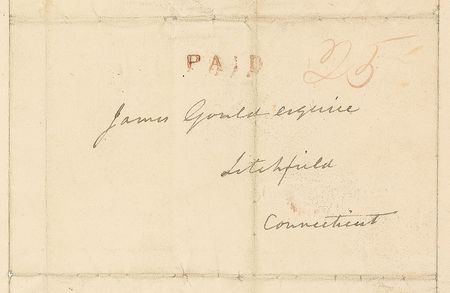 PAID 25
James Gould esquire
Litchfield
Connecticut